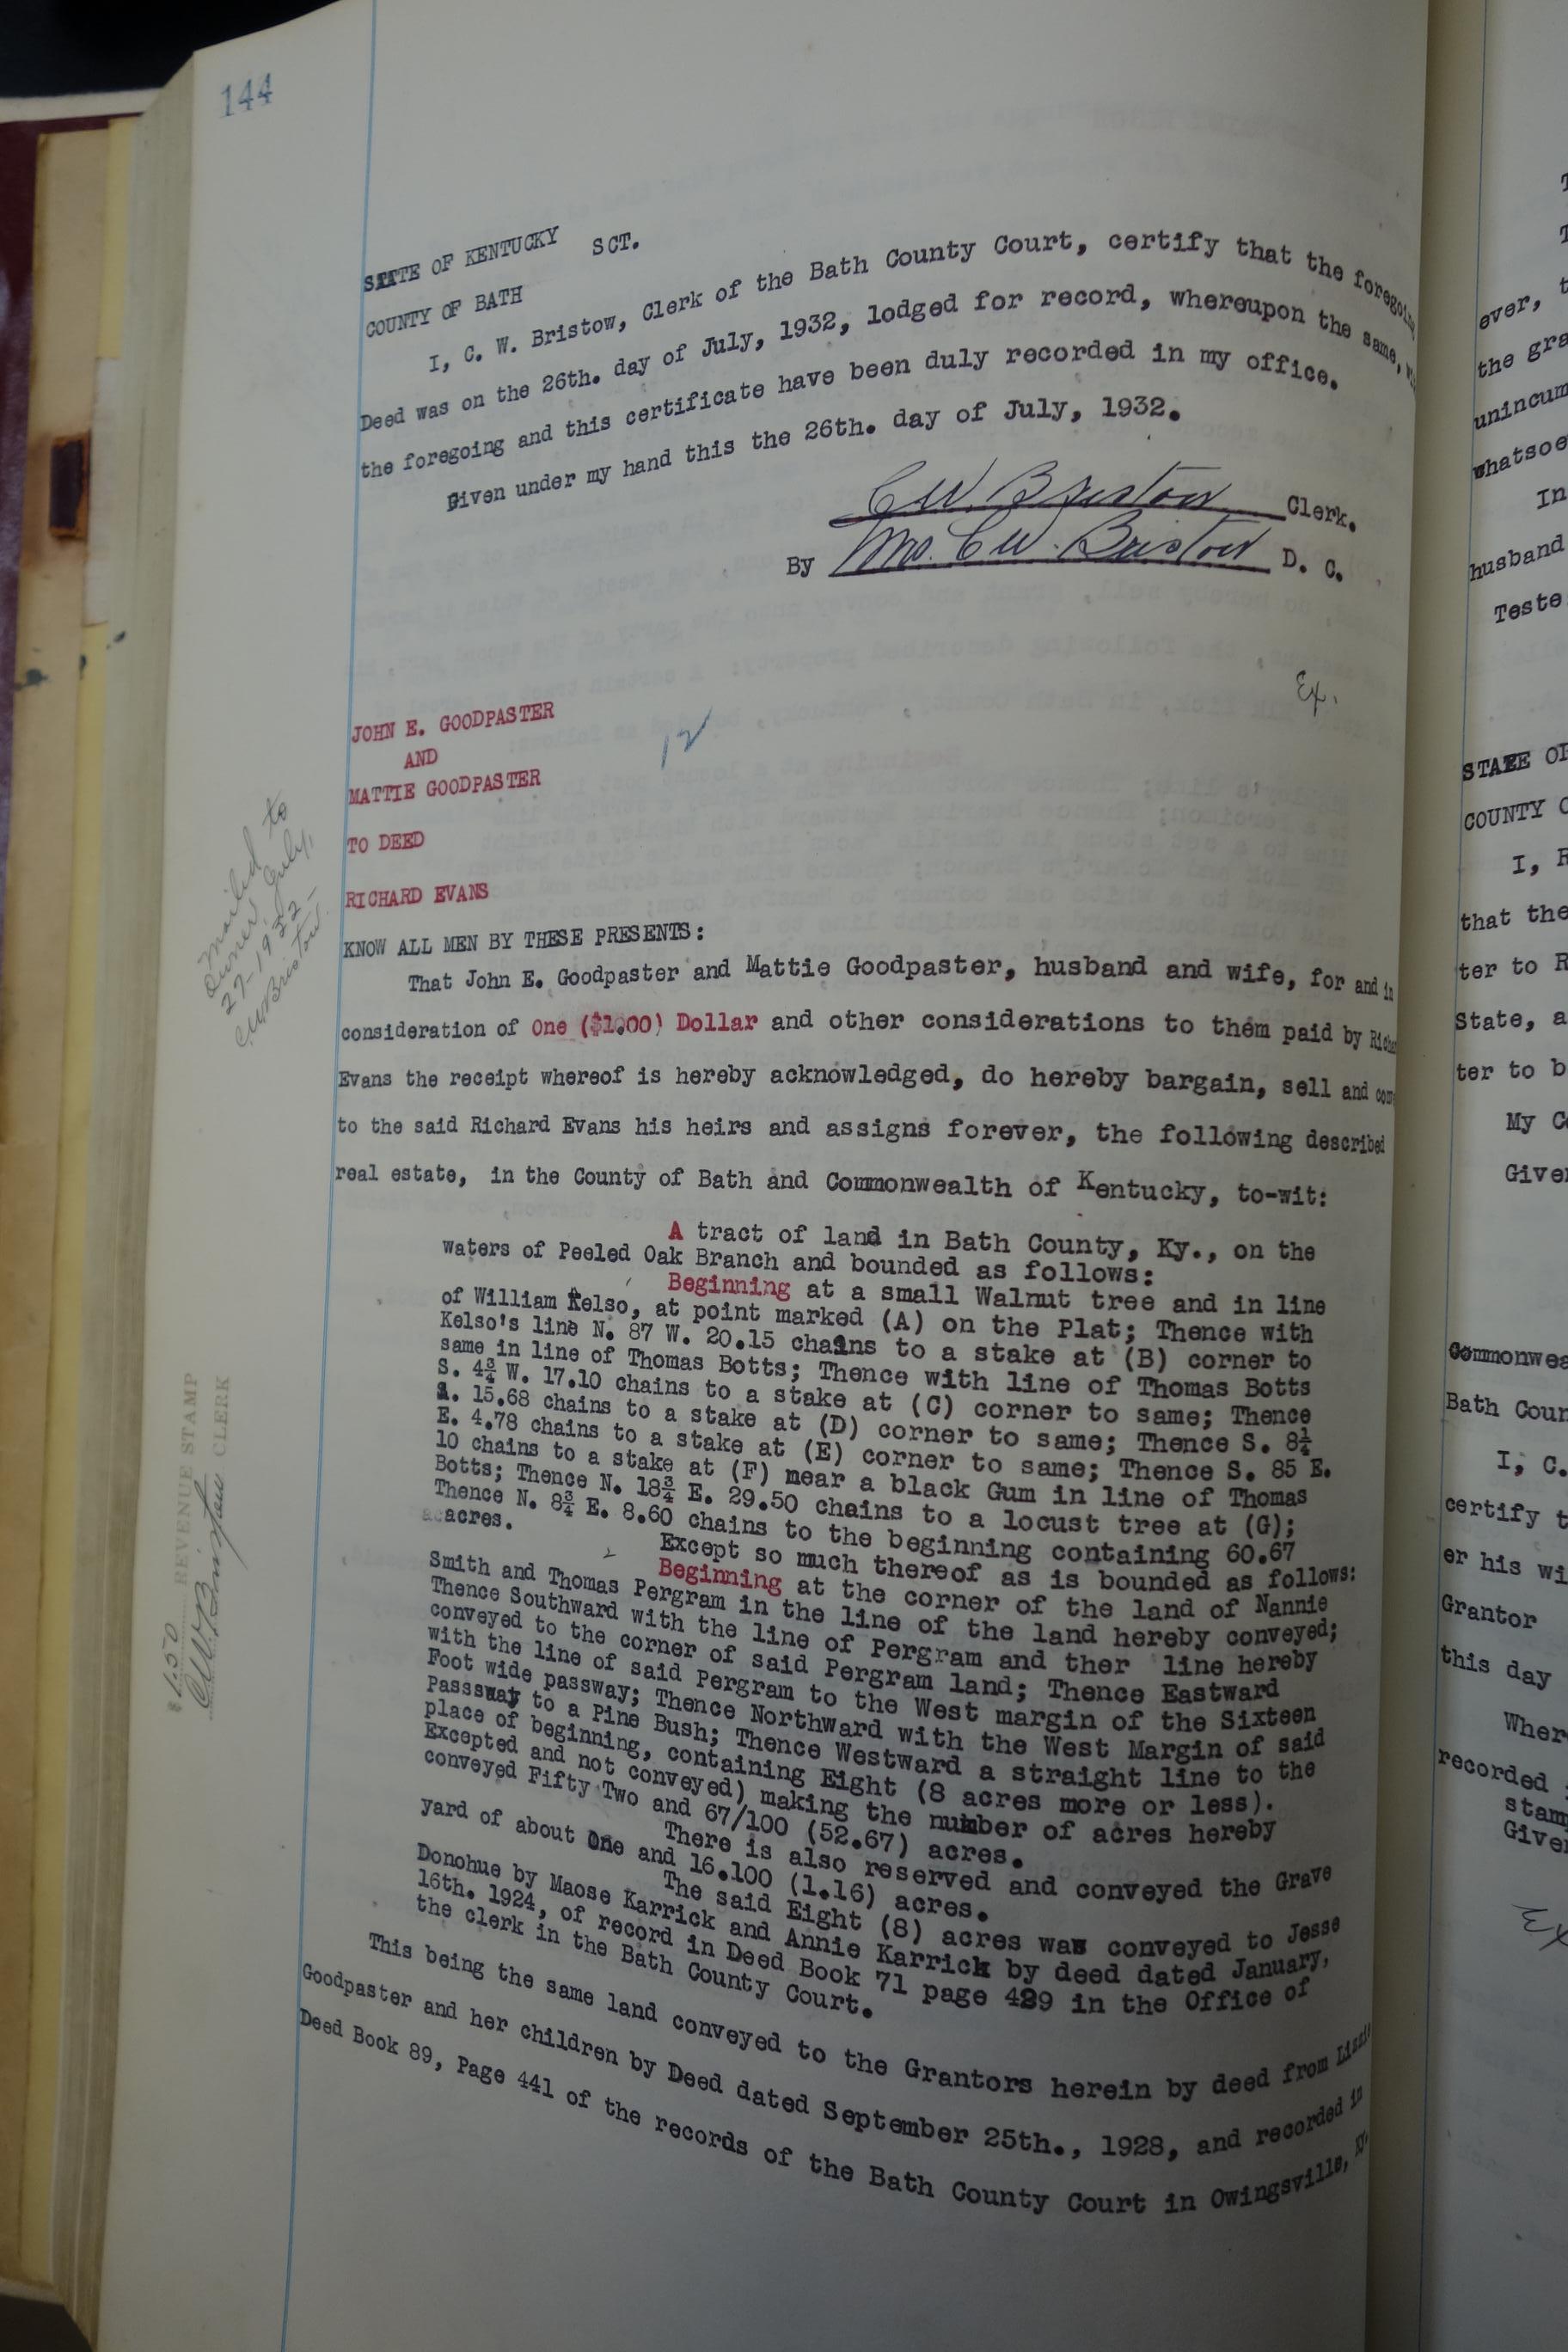 144
STATE OF KENTUCKY
SCT.
COUNTY OF BATH
I, C. W. Bristow, Clerk of the Bath County Court, certify that the foregoing
Deed was on the 26th. day of July, 1932, lodged for record, whereupon the same,
the foregoing and this certificate have been duly recorded in my office.
Given under my hand this the 26th. day of July, 1932.
C W. Bristow Clerk.
By Mrs. C W. Bristow D. C.
Ex.
JOHN E. GOODPASTER
AND
12
MATTIE GOODPASTER
TO DEED
RICHARD EVANS
Mailed to
Owner July,
27-1932-
CW Bristow
KNOW ALL MEN BY THESE PRESENTS:
That John E. Goodpaster and Mattie Goodpaster, husband and wife, for and in
consideration of One ($1.00) Dollar and other considerations to them paid by Richa
Evans the receipt whereof is hereby acknowledged, do hereby bargain, sell and con
to the said Richard Evans his heirs and assigns forever, the following described
real estate, in the County of Bath and Commonwealth of Kentucky, to-wit:
A tract of land in Bath County, Ky., on the
waters of Peeled Oak Branch and bounded as follows:
Beginning at a small Walnut tree and in line
of William Kelso, at point marked (A) on the Plat; Thence with
Kelso's line N. 87 W. 20.15 chains to a stake at (B) corner to
same in line of Thomas Botts; Thence with line of Thomas Botts
S. 4¾ W. 17.10 chains to a stake at (C) corner to same; Thence
15.68 chains to a stake at (D) corner to same; Thence S. 8¼
E. 4.78 chains to a stake at (E) corner to same; Thence S. 85 E.
10 chains to a stake at (F) near a black Gum in line of Thomas
Botts; Thence N. 18¾ E. 29.50 chains to a locust tree at (G);
Thence N. 8¾ E. 8.60 chains to the beginning containing 60.67
acres.
Except so much thereof as is bounded as follows:
Beginning at the corner of the land of Nannie
Smith and Thomas Pergram in the line of the land hereby conveyed;
Thence Southward with the line of Pergram and ther line hereby
conveyed to the corner of said Pergram land; Thence Eastward
with the line of said Pergram to the West margin of the Sixteen
Foot wide passway; Thence Northward with the West Margin of said
Passsway to a Pine Bush; Thence Westward a straight line to the
place of beginning, containing Eight (8 acres more or less).
Excepted and not conveyed) making the number of acres hereby
conveyed Fifty Two and 67/100 (52.67) acres.
There is also reserved and conveyed the Grave
yard of about One and 16.100 (1.16) acres.
The said Eight (8) acres was conveyed to Jesse
Donohue by Maose Karrick and Annie Karrick by deed dated January,
16th. 1924, of record in Deed Book 71 page 429 in the Office of
the clerk in the Bath County Court.
This being the same land conveyed to the Grantors herein by deed from Lizzie
Goodpaster and her children by Deed dated September 25th., 1928, and recorded in
Deed Book 89, Page 441 of the records of the Bath County Court in Owingsville, Ky.
$1.50 REVENUE STAMP
CW Bristow CLERK
ever, t
the gra
unincum
whatsoe
In
husband
Teste
STATE OF
COUNTY O
I, R
that the
ter to R
State, a
ter to b
My Co
Given
Commonwea
Bath Coun
I, C.
certify t
er his wi
Grantor
this day
Wher
recorded
stam
Give
Ex